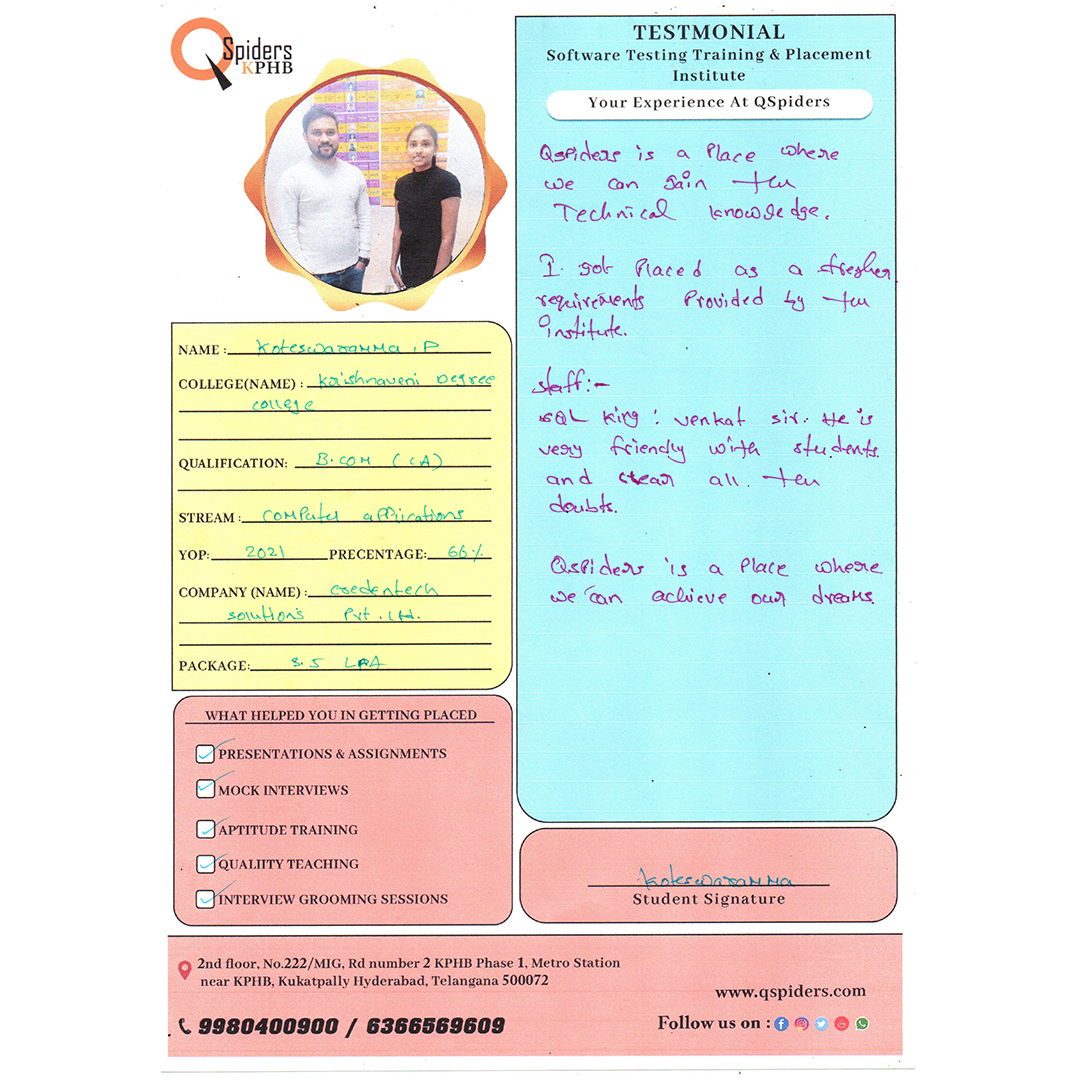 QSpiders
KPHB
NAME : Koteswaramma . P
COLLEGE(NAME) : Krishnaveni Degree
college
QUALIFICATION: B.COM (CA)
STREAM : computer applications
YOP: 2021 PRECENTAGE: 66%
COMPANY (NAME) : credentech
solutions Pvt. Ltd.
PACKAGE: 3.5 LPA
WHAT HELPED YOU IN GETTING PLACED
PRESENTATIONS & ASSIGNMENTS
MOCK INTERVIEWS
APTITUDE TRAINING
QUALIITY TEACHING
INTERVIEW GROOMING SESSIONS
TESTMONIAL
Software Testing Training & Placement
Institute
Your Experience At QSpiders
Qspiders is a Place where
we can gain
Technical knowledge.
I got Placed as a fresher
requirements Provided by
institute.
staff:-
SQL King : venkat sir. He is
very friendly with students.
and clear all.
doubts.
Qspiders is a Place where
we can achieve our dreams.
Koteswaramma
Student Signature
2nd floor, No.222/MIG, Rd number 2 KPHB Phase 1, Metro Station
near KPHB, Kukatpally Hyderabad, Telangana 500072
9980400900 / 6366569609
www.qspiders.com
Follow us on :